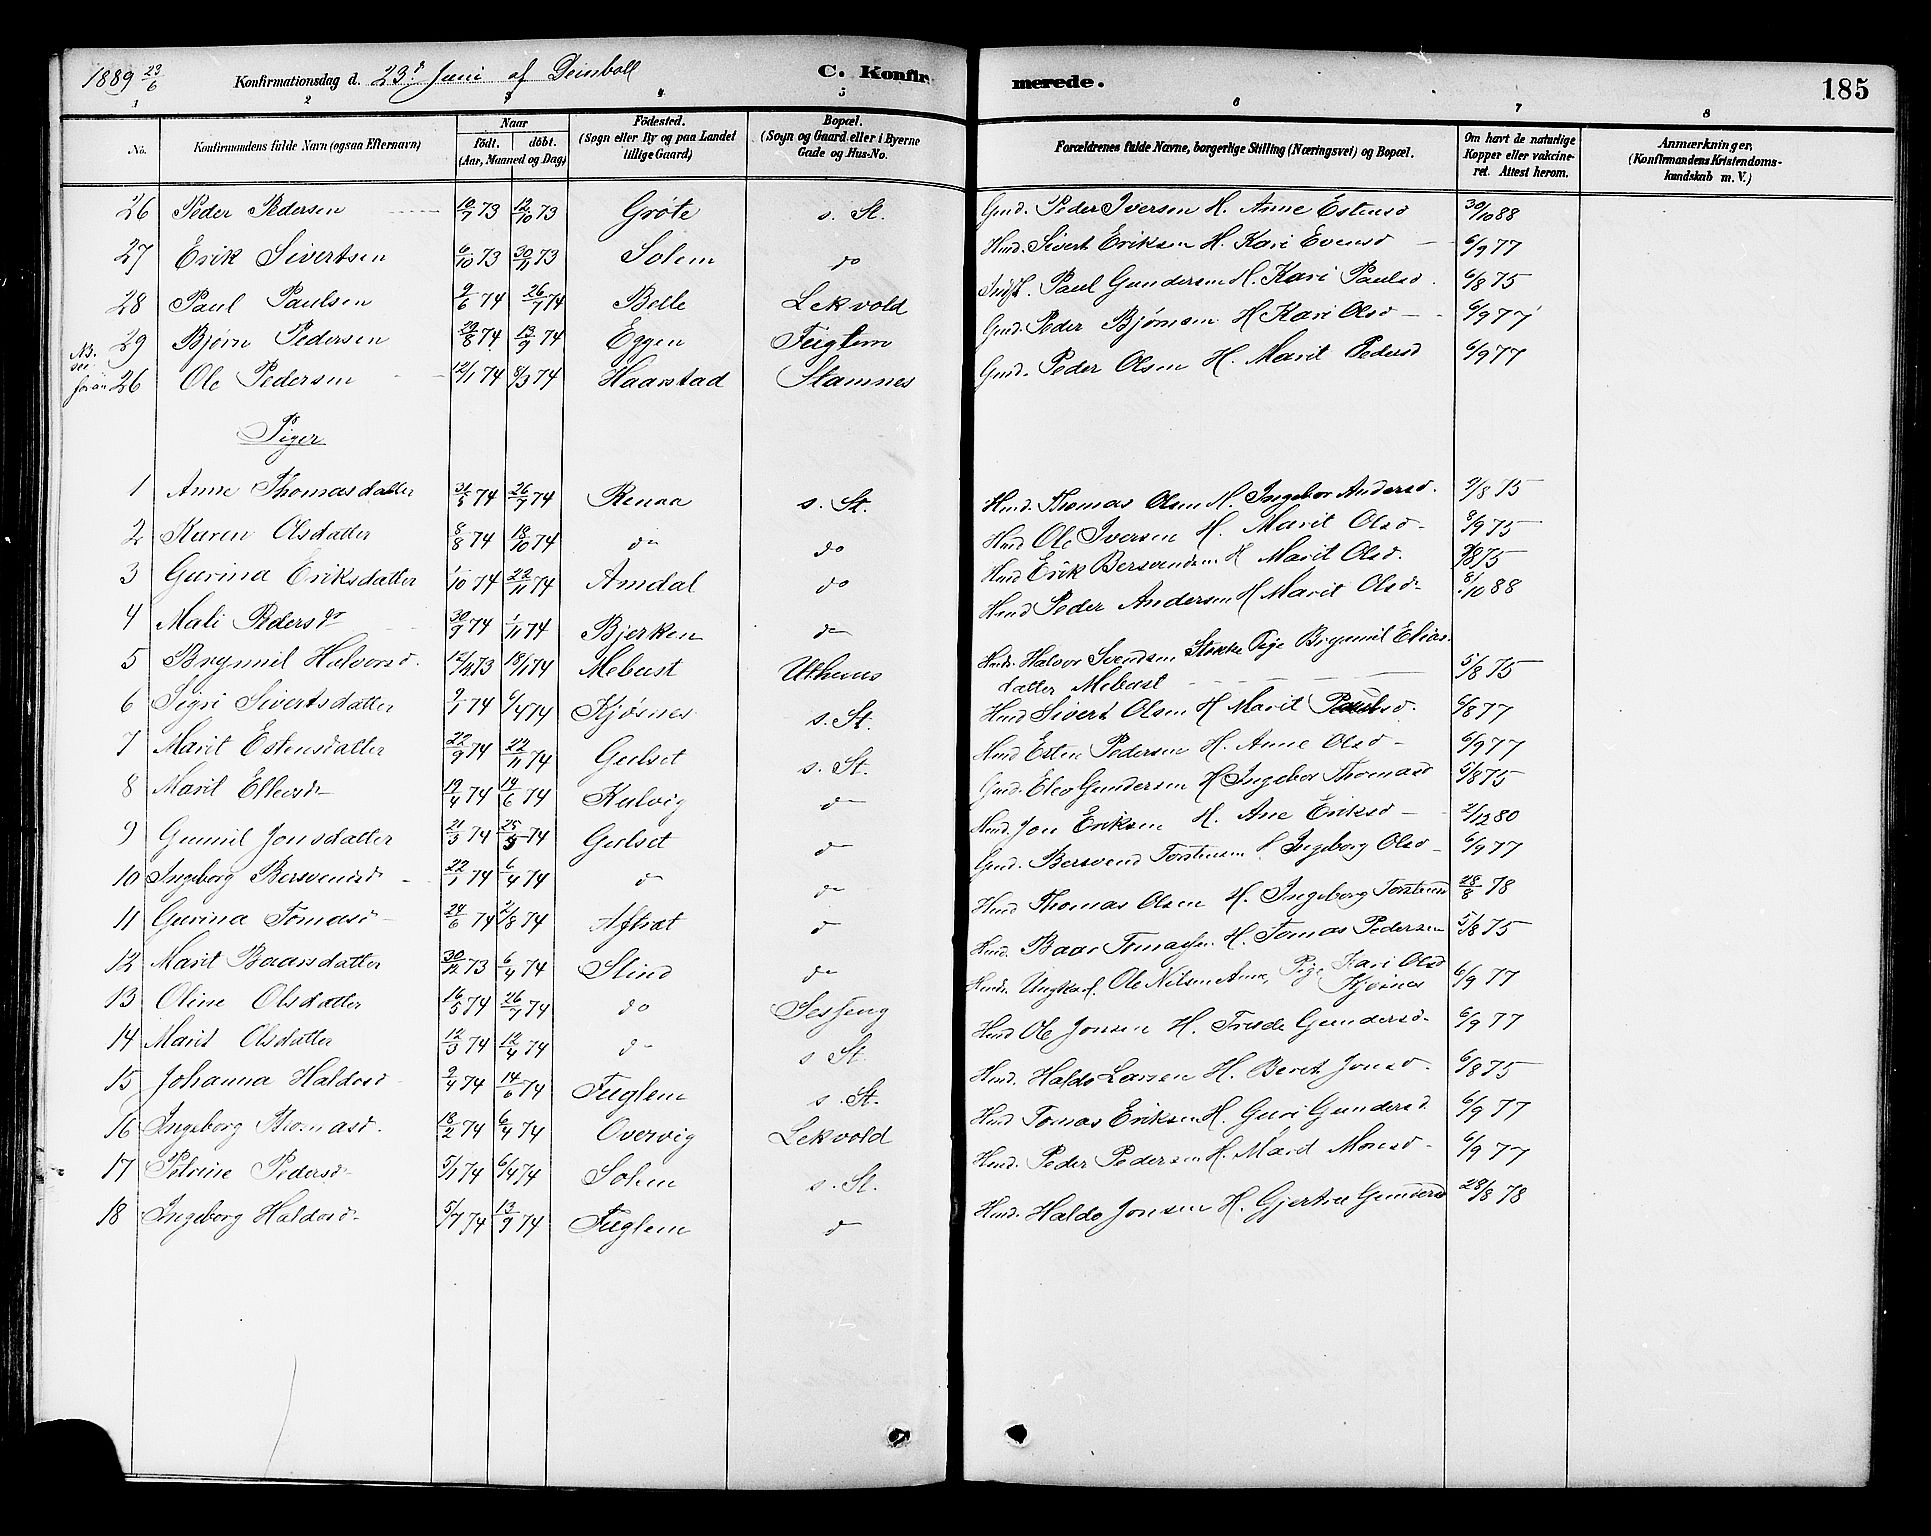 1889 23/6 Konfirmationsdag d. 23d Juni af Deinboll C. Konfir- merede. 185
1 2 3 4 5 6 7 8
No. Konfirmandens fulde Navn (ogsaa Efternavn) Naar födt. döbt. (Aar, Maaned og Dag) Födested. (Sogn eller By og paa Landet tillige Gaard) Bopæl. (Sogn og Gaard eller i Byerne Gade og Hus-No. Forældrenes fulde Navne, borgerlige Stilling (Næringsvei) og Bopæl. Om havt de naturlige Kopper eller vakcineret. Attest herom. Anmærkninger, (Konfirmandens Kristendomskundskab m. V.)
26 Peder Pedersen 10/7 73 12/10 73 Gröte s. St. Gmd. Peder Iversen H. Anne Estensd 30/10 88
27 Erik Sivertsen 6/10 73 30/11 73 Solem do Hmd. Sivert Eriksen H. Kari Evensd 6/9 77
28 Paul Paulsen 9/6 74 26/7 74 Bolle Lekvold Paul Gundersen H. Kari Paulsd. 6/8 75
29 Björn Pedersen 20/8 74 13/9 74 Eggen Fuglem Gmd. Peder Björnsen H Kari Olsd 6/9 77
NB. 26 Ole Pedersen 12/1 74 8/3 74 Haarstad Stamnes Gmd. Peder Olsen H. Marit Pedersd 6/9 77
Piger
1 Anne Thomasdatter 31/5 74 26/7 74 Renaa s. St. Hmd. Thomas Olsen H. Ingebor Andersd. 2/8 75
2 Karen Olsdatter 8/8 74 18/10 74 do do Hmd Ole Iversen H. Marit Olsd 8/9 75
3 Gurina Eriksdatter 1/10 74 22/11 74 Amdal do Hmd Erik Bersvendsen H Marit Olsd. 75
4 Mali Pedersdr 30/9 74 1/11 74 Bjerken do Hmd Peder Andersen H Marit Olsd 8/10 88
5 Brynnil Halvorsd. 12/11 73 18/1 74 Mebust Uthuus Halvor Svendsen Stokke Pige Brynnil Elias-
datter Mebust 5/8 75
6 Sigri Sivertsdatter 9/1 74 6/4 74 Kjösnes s. St. Hmd Sivert Olsen H Marit Paulsd. 6/8 77
7 Marit Estensdatter 22/9 74 22/11 74 Gulset s. St. Hmd Esten Pedersen H. Anne Olsd 6/9 77
8 Marit Ellevsdr 19/4 74 14/6 74 Kulvig do Gmd. Elev Gundersen H Ingebor Thomasd 5/8 75
9 Gunnil Jonsdatter 21/3 74 25/5 74 Gulset do Hmd. Jon Eriksen H. Ane Eriksd 2/12 80
10 Ingeborg Bersvendsd 22/1 74 6/4 74 do do Gmd. Bersvend Torstensen H Ingeborg Olsd 6/9 77
11 Gurina Tomasd 24/6 74 2/8 74 Aftret do Hmd Thomas Olsen H. Ingeborg Torstensd 28/8 78
12 Marit Baarsdatter 30/12 73 6/4 74 Slind do Hmd. Baar Tomassen H. Tomas Pedersen 5/8 75
13 Oline Olsdatter 16/5 74 26/7 74 do Sesseng Ungkarl. Ole Nilsen Aune, Pige Kari Olsd Kjösnes 6/9 77
14 Marit Olsdatter 12/3 74 12/4 74 do s St. Hmd Ole Jonsen H. Gundersd 6/9 77
15 Johanna Haldosd 9/4 74 14/6 74 Fuglem s. St. Hmd. Haldo Larsen H. Beret Jonsd. 6/8 75
16 Ingeborg Thomasd. 18/2 74 6/4 74 Overvig Lekvold Hmd Tomas Eriksen H. Guri Gundersd. 6/9 77
17 Pedersd 5/1 74 6/4 74 Solem s. St. Hmd. Peder Pedersen H. Marit Monsd 6/9 77
18 Ingeborg Haldosd. 5/7 74 13/9 74 Fuglem do Hmd. Haldo Jonsen H. Gjertru Gundersd 28/8 78